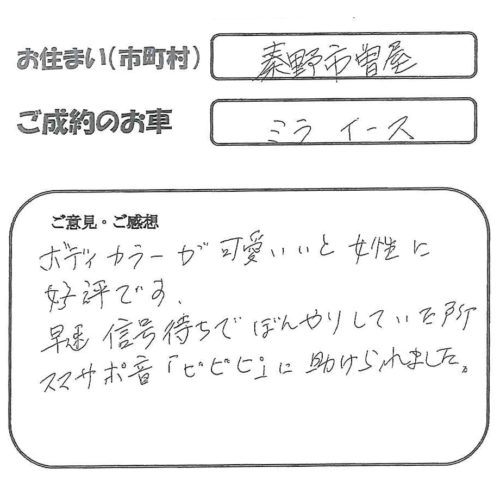 お住まい(市町村)
秦野市曽屋
ご成約のお車
ミラ イース
ご意見・ご感想
ボディカラーが可愛いいと女性に
好評です.
早速 信号待ちでぼんやりしていた所
スマサポ音「ピピピ」に助けられました。